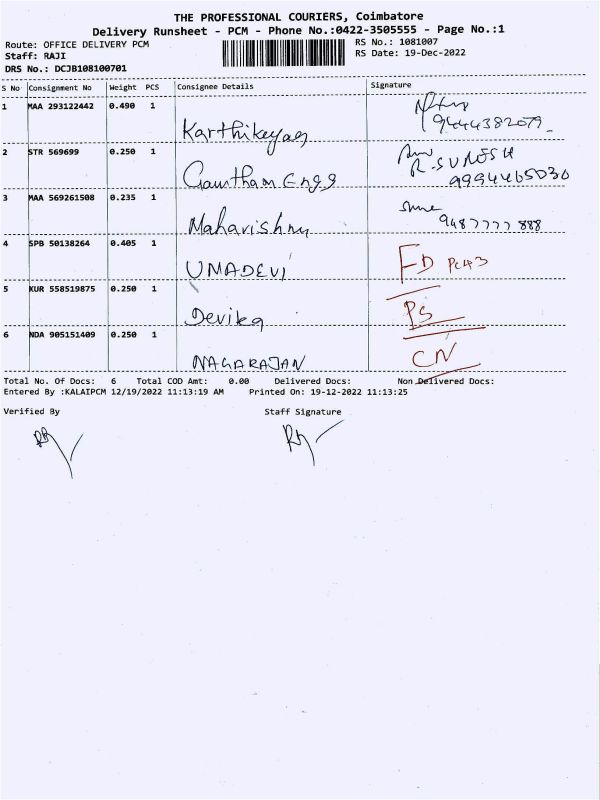 THE PROFESSIONAL COURIERS, Coimbatore
Delivery Runsheet - PCM - Phone No.:0422-3505555 - Page No.:1
Route: OFFICE DELIVERY PCM RS No.: 1081007
Staff: RAJI RS Date: 19-Dec-2022
DRS No.: DCJB108100701
S No Consignment No Weight PCS Consignee Details Signature
1 MAA 293122442 0.490 1 Karthikeyan 9444382079
2 STR 569699 0.250 1 Gautham Engg R-SURESH 9994465030
3 MAA 569261508 0.235 1 Mahavishnu 9487777888
4 SPB 50138264 0.405 1 UMADEVI FD PC43
5 KUR 558519875 0.250 1 Devika PS
6 NDA 905151409 0.250 1 NAGARAJAN CN
Total No. Of Docs: 6 Total COD Amt: 0.00 Delivered Docs: Non Delivered Docs:
Entered By :KALAIPCM 12/19/2022 11:13:19 AM Printed On: 19-12-2022 11:13:25
Verified By Staff Signature